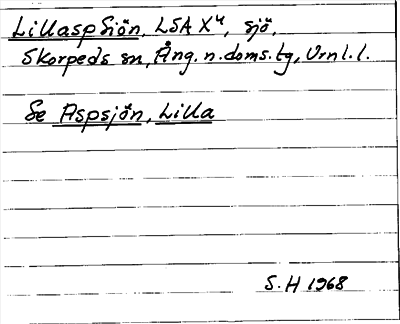 Lillasp Siön, LSA X4, sjö,
Skorpeds sn, Ång. n. doms. tg, Vrnl. l.
Se Aspsjön, Lilla
S. H 1968